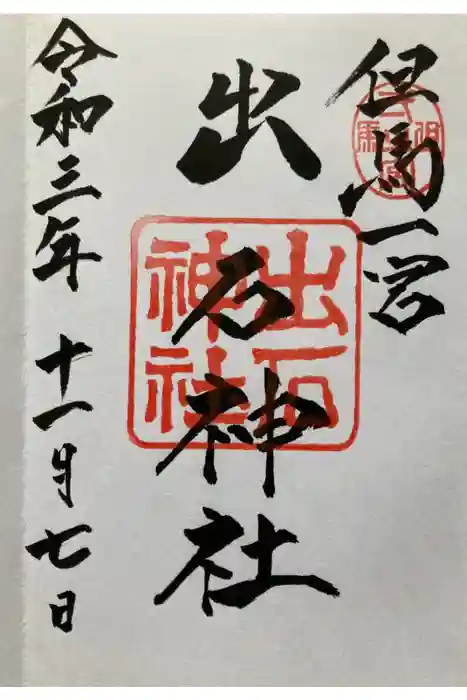 但馬一宮
出石神社
令和三年十一月七日
出石
神社